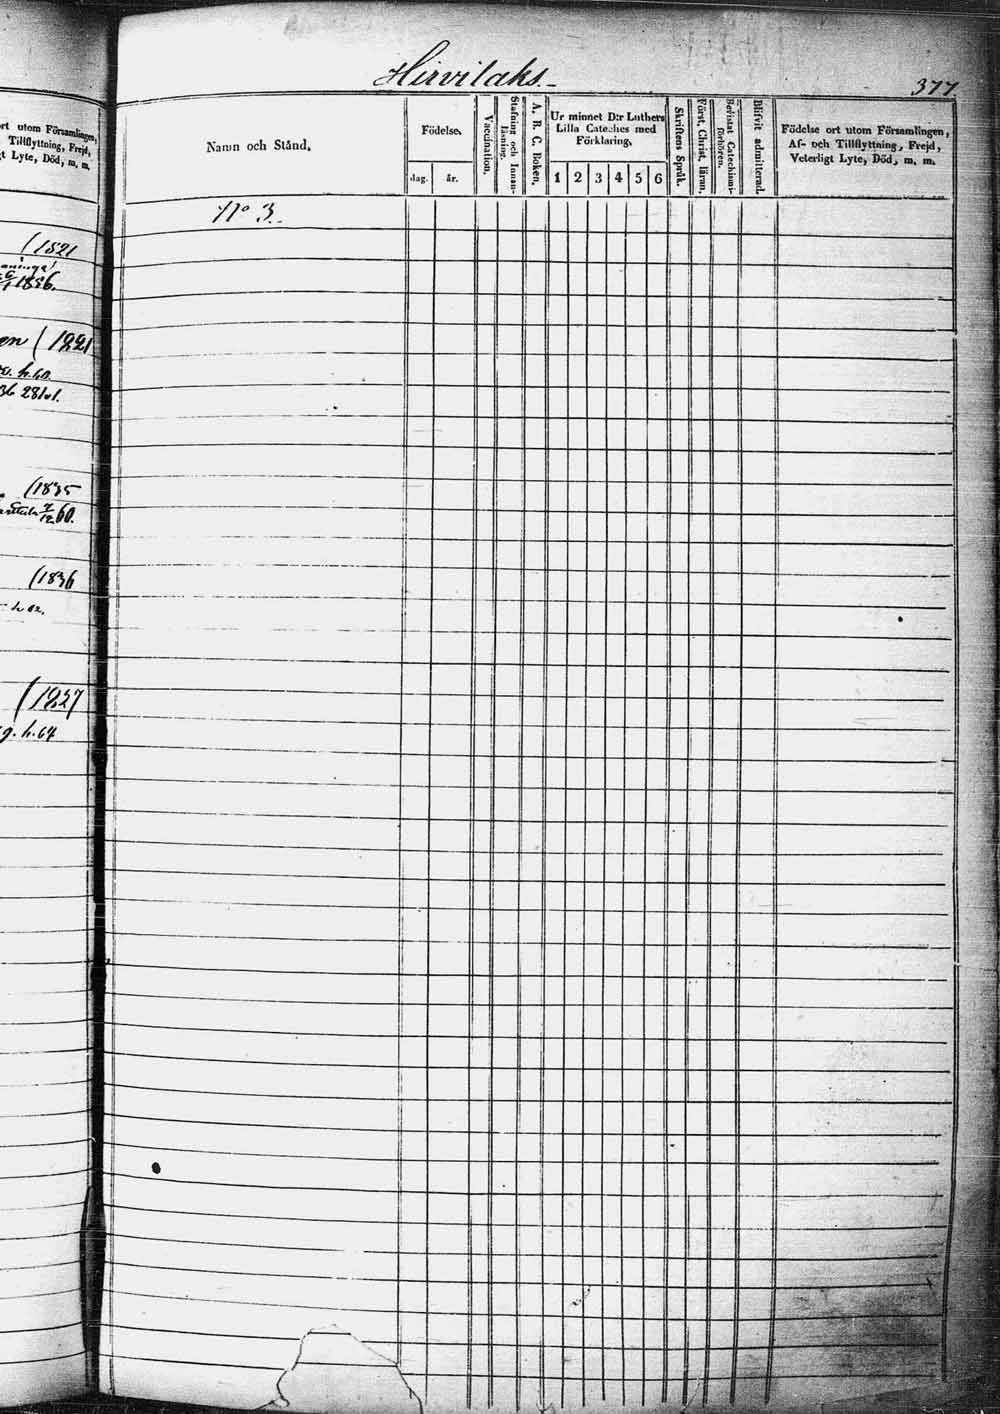 Hirvilaks.
377
ort utom Församlingen,
Tillflyttning, Frejd,
gt Lyte, Död, m. m.
Namn och Stånd.
Födelse.
dag.
år.
Vaccination.
Stafning och Innanläsning.
A. B. C. Boken.
Ur minnet D:r Luthers
Lilla Cateches med
Förklaring.
1 2 3 4 5 6
Skriftens Språk.
Först. Christ. läran.
Bevistat Catechismiförhören.
Blifvit admitterad.
Födelse ort utom Församlingen,
Af- och Tillflyttning, Frejd,
Veterligt Lyte, Död, m. m.
No 3.
(1821
1836.
en (1821
h.60.
36 281.
(1835
7/12 60.
(1836
h 62.
(1827
g. h. 64